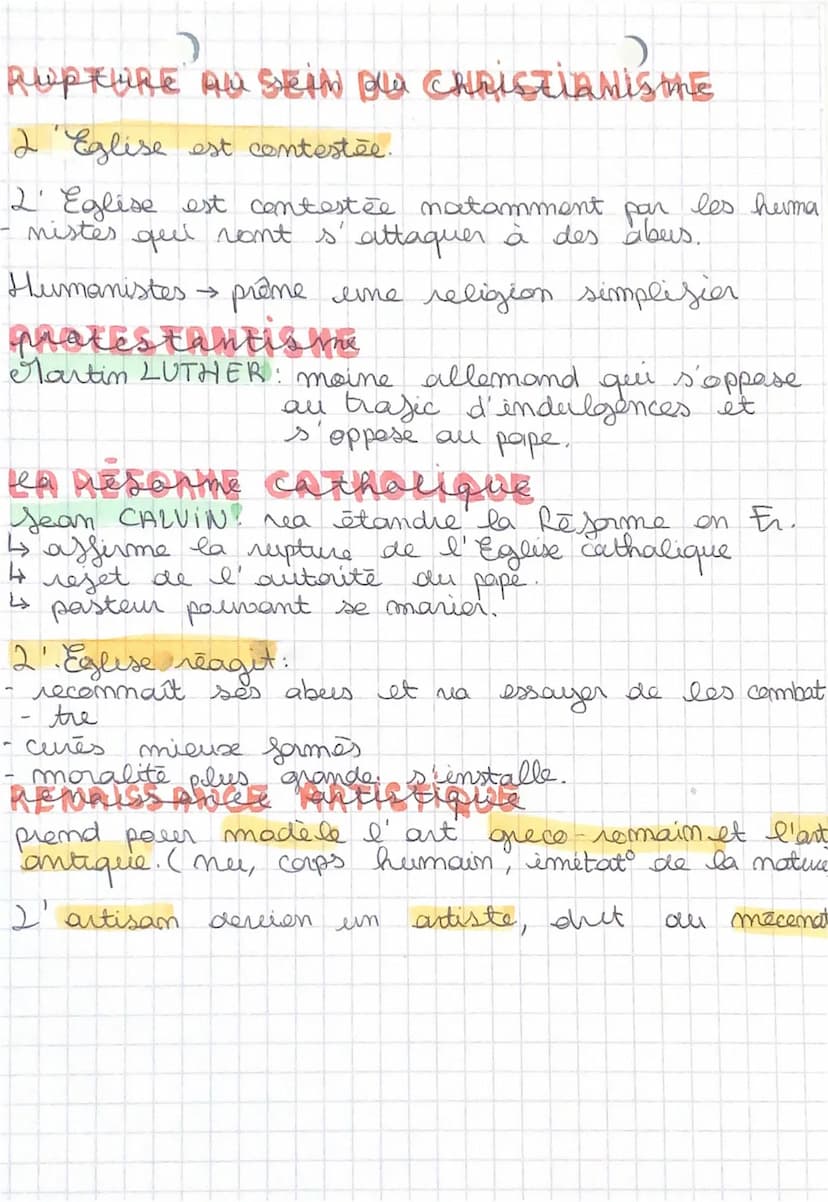 RUPTURE AU SEIN DU CHRISTIANISME
L'Eglise est contestée.
L'Eglise est contestée notamment par les huma
- nistes qui vont s'attaquer à des abus.
Humanistes → prône une religion simplifier
PROTESTANTISME
Martin LUTHER : moine allemand qui s'oppose
au trafic d'indulgences et
s'oppose au pape.
LA RÉFORME CATHOLIQUE
Jean CALVIN : va étandre la Réforme en Fr.
↳ affirme la rupture de l'Eglise catholique
↳ rejet de l'autorité du pape.
↳ pasteur pouvant se marier.
L'Eglise réagit :
- reconnaît ses abus et va essayer de les combat
- tre
- curés mieux formés
- moralité plus grande s'installe.
RENAISSANCE ARTISTIQUE
prend pour modèle l'art greco-romain et l'art
antique. ( nu, corps humain, imitat° de la nature
L'artisan devien un artiste, du mécenat